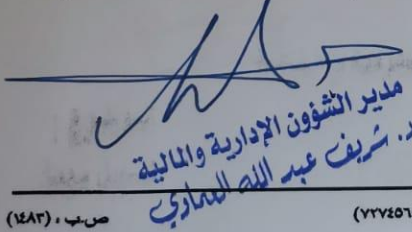 مدير الشؤون الإدارية والمالية
د. شريف عبد الله العماري
(٧٢٧٤٥٦ ص.ب : (١٤٨٣)